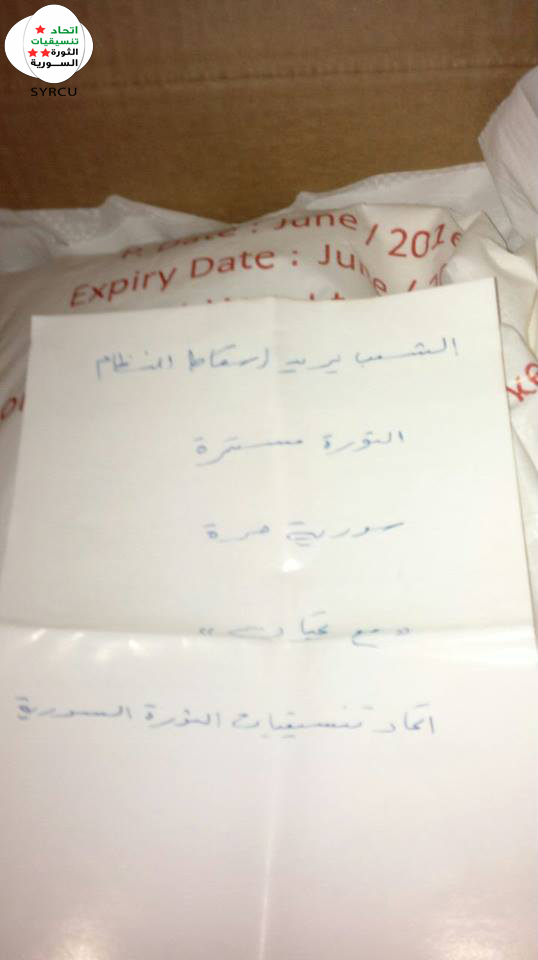 اتحاد
تنسيقيات
الثورة
السورية
SYRCU
Date : June / 2016
Expiry Date : June /
الشعب يريد إسقاط النظام
الثورة مستمرة
سورية حرة
"مع تحيات"
اتحاد تنسيقيات الثورة السورية